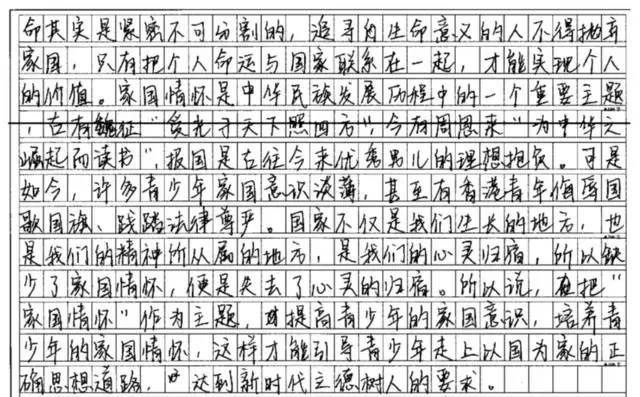 命其实是紧密不可分割的，追寻自生命意义的人不得抛弃
家国，只有把个人命运与国家联系在一起，才能实现个人
的价值。家国情怀是中华民族发展历程中的一个重要主题
，古有魏征“受光于天下照四方”，今有周恩来“为中华之
崛起而读书”，报国是古往今来优秀男儿的理想抱负。可是
如今，许多青少年家国意识淡薄，甚至有香港青年侮辱国
歌国旗、践踏法律尊严。国家不仅是我们生长的地方，也
是我们的精神所从属的地方，是我们的心灵归宿，所以缺
少了家国情怀，便是失去了心灵的归宿。所以说，要把“
家国情怀”作为主题，才提高青少年的家国意识，培养青
少年的家国情怀，这样才能引导青少年走上以国为家的正
确思想道路，达到新时代立德树人的要求。